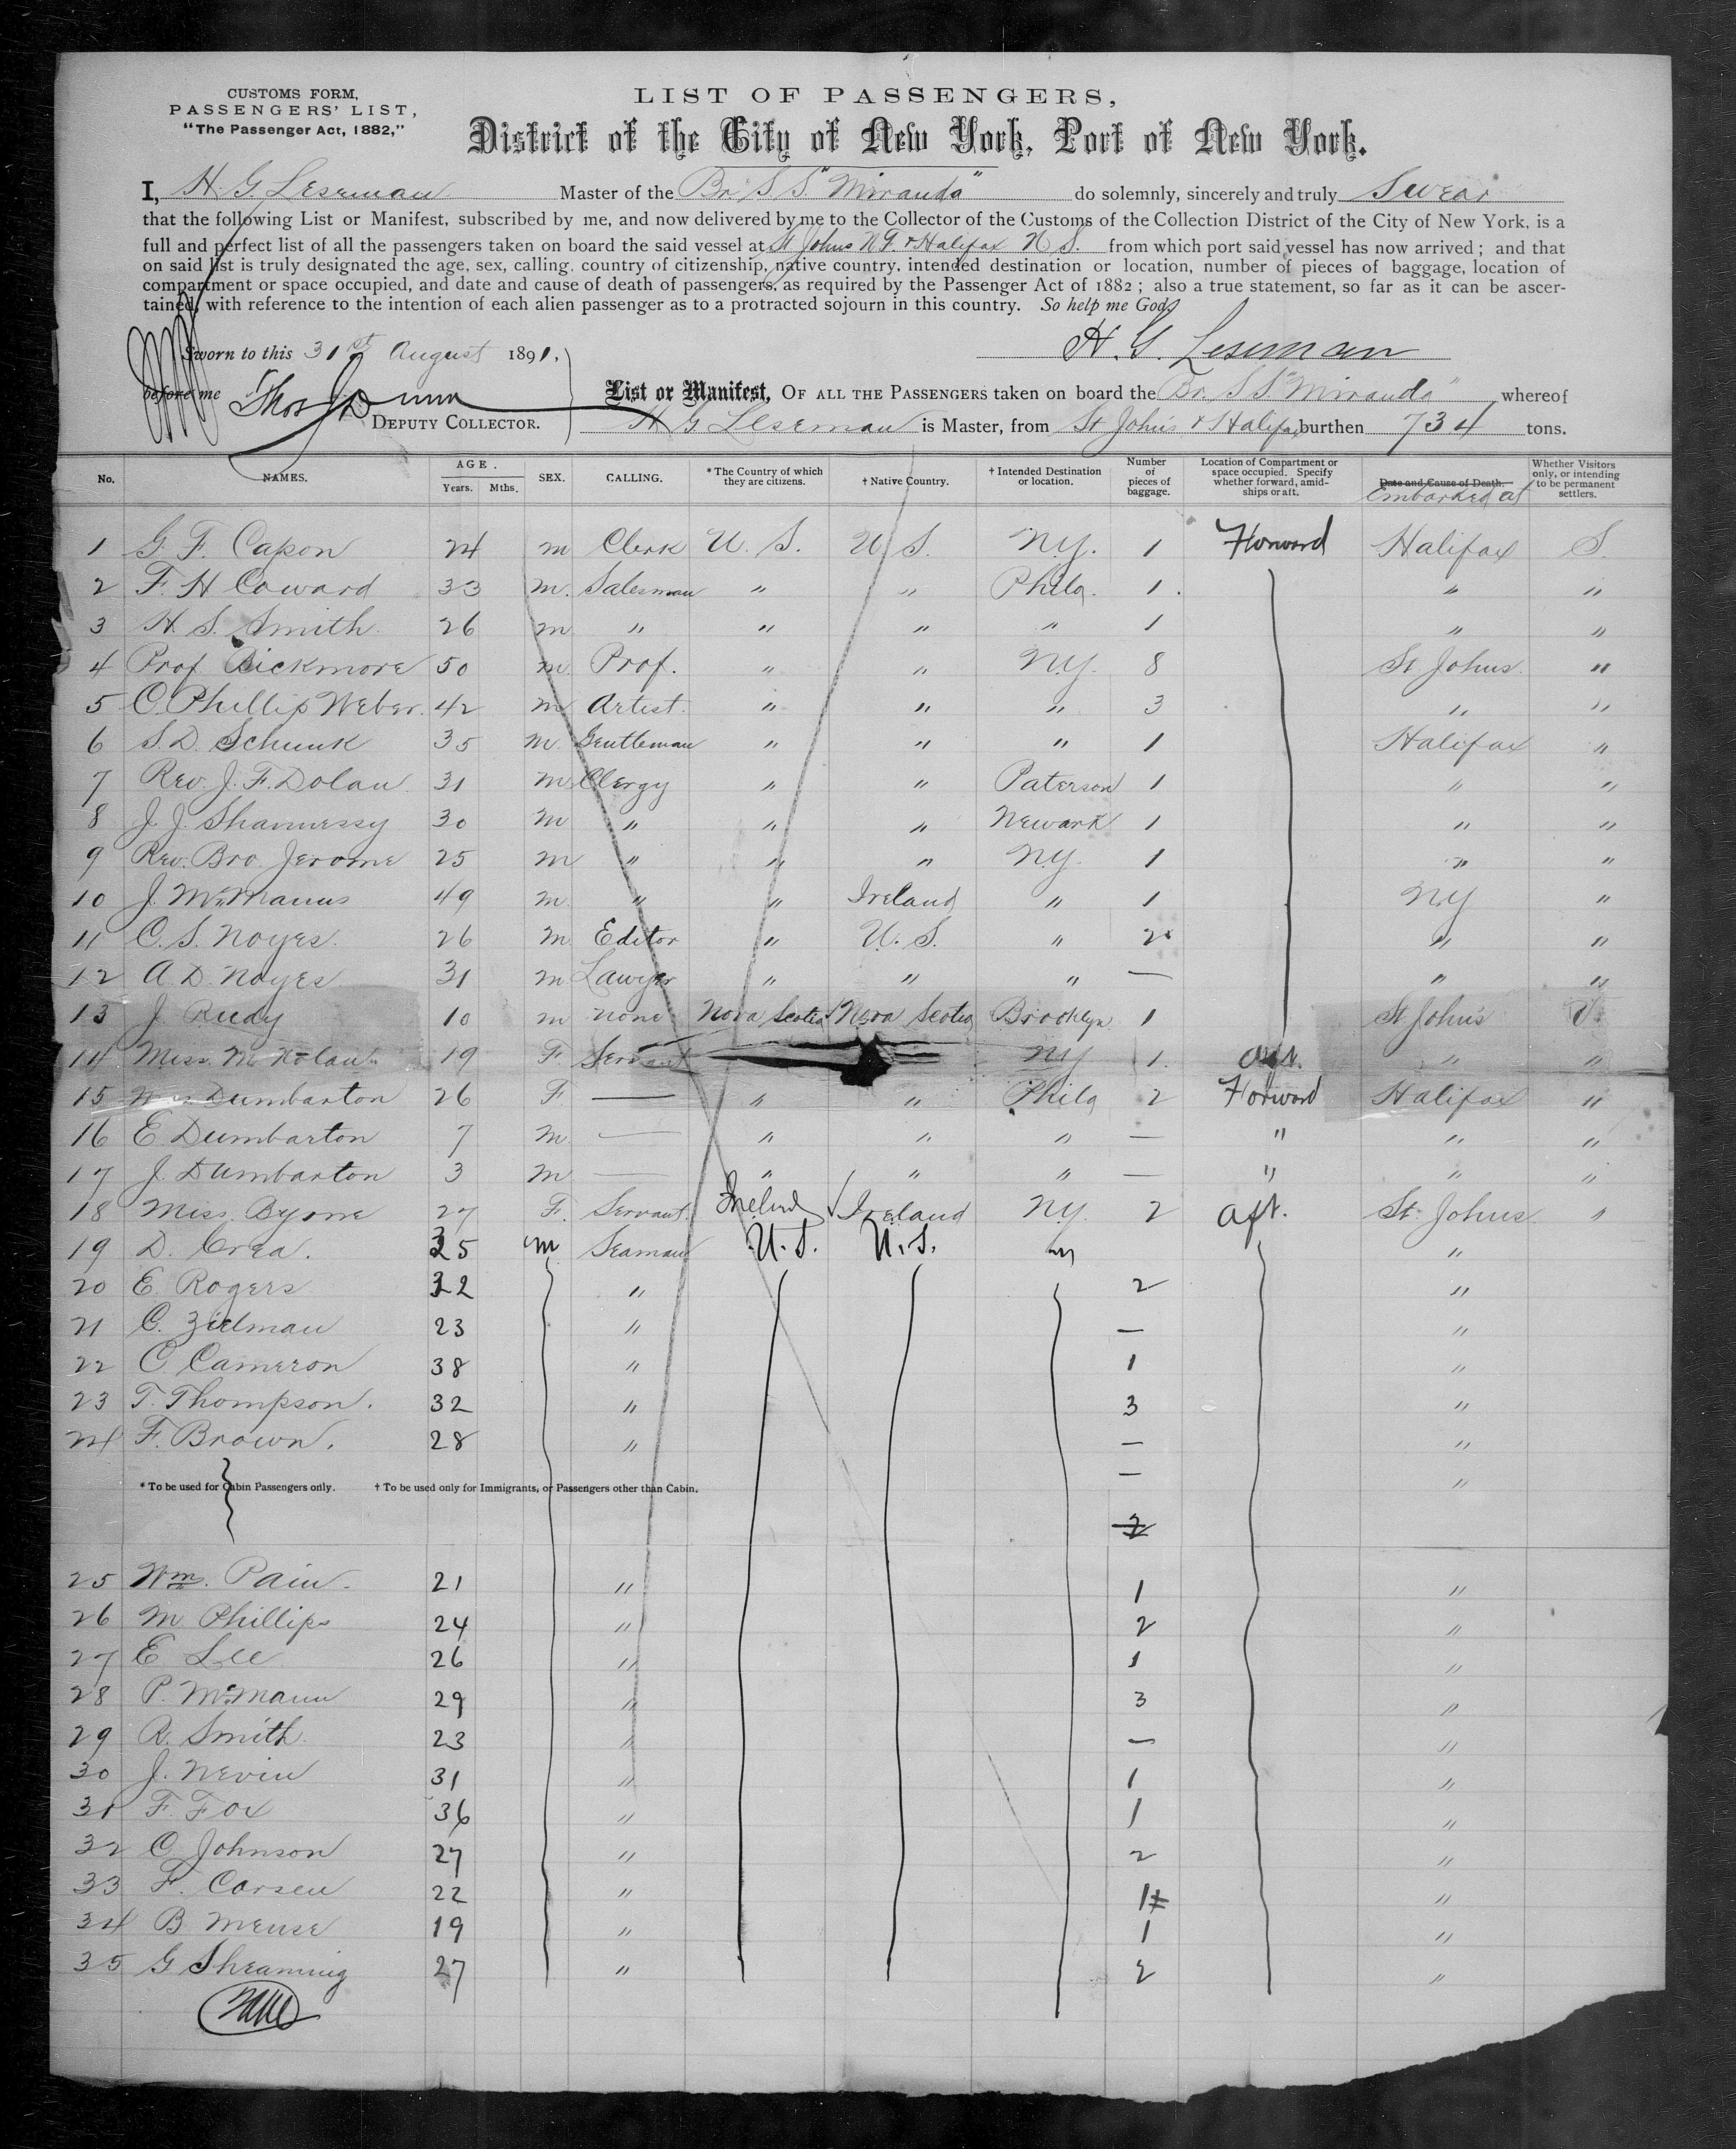 CUSTOMS FORM,
PASSENGERS' LIST,
"The Passenger Act, 1882,"
LIST OF PASSENGERS,
District of the City of New York, Port of New York.
I, H. G. Leseman Master of the Br. S S. "Miranda" do solemnly, sincerely and truly Swear
that the following List or Manifest, subscribed by me, and now delivered by me to the Collector of the Customs of the Collection District of the City of New York, is a
full and perfect list of all the passengers taken on board the said vessel at St Johns N.F. & Halifax N S. from which port said vessel has now arrived; and that
on said list is truly designated the age, sex, calling, country of citizenship, native country, intended destination or location, number of pieces of baggage, location of
compartment or space occupied, and date and cause of death of passengers, as required by the Passenger Act of 1882; also a true statement, so far as it can be ascer-
tained, with reference to the intention of each alien passenger as to a protracted sojourn in this country. So help me God.
Sworn to this 31st August 1891,
H. G. Leseman
before me Thos J Dunn
DEPUTY COLLECTOR.
List or Manifest, OF ALL THE PASSENGERS taken on board the Br. S S. "Miranda" whereof
H G Leseman is Master, from St John's & Halifax burthen 734 tons.
No. NAMES. AGE. Years. Mths. SEX. CALLING. * The Country of which they are citizens. † Native Country. † Intended Destination or location. Number of pieces of baggage. Location of Compartment or space occupied. Specify whether forward, amidships or aft. Date and Cause of Death. Embarked at Whether Visitors only, or intending to be permanent settlers.
1 G. F. Capon 24 m Clerk U. S. U. S. N.Y. 1 Forward Halifax S.
2 F. H Coward 33 m. Salesman " " Phila. 1. " "
3 H. S. Smith 26 m " " " " 1 " "
4 Prof Bickmore 50 m. Prof. " " N.Y. 8 St Johns "
5 C. Phillip Weber. 42 m Artist. " " " 3 " "
6 S. D. Schunk 35 m. Gentleman " " " 1 Halifax "
7 Rev. J. F. Dolan 31 m Clergy " " Paterson 1 " "
8 J. J. Shannessy 30 m " " " Newark 1 " "
9 Rev. Bro. Jerome 25 m " " " N.Y. 1 " "
10 J. McManus 49 m. " " Ireland " 1 N.Y "
11 C. S. Noyes. 26 m. Editor " U. S. " 2 " "
12 A. D. Noyes 31 m Lawyer " " " — " "
13 J. Rudy 10 m none Nova Scotia Nova Scotia Brooklyn 1 St John's
14 Miss M. Nolan 19 F. Servant NY 1. aft. " "
15 Dumbarton 26 F. — " " Phila 2 Forward Halifax "
16 E Dumbarton 7 m. — " " " — " " "
17 J. Dumbarton 3 m — " " " — " " "
18 Miss. Byrne 27 F. Servant. Ireland Ireland N.Y. 2 aft. St. Johns "
19 D. Crea. 35 m Seaman U.S. U.S. "
20 E. Rogers 32 " 2 "
21 C. Zielman 23 " — "
22 C. Cameron 38 " 1 "
23 T. Thompson. 32 " 3 "
24 F. Brown. 28 " — "
* To be used for Cabin Passengers only. † To be used only for Immigrants, or Passengers other than Cabin. — "
2
25 Wm. Pain. 21 " 1 "
26 M. Phillips 24 " 2 "
27 E Lee 26 " 1 "
28 P. McMann 29 " 3 "
29 R. Smith 23 " — "
30 J. Nevin 31 " 1 "
31 F. Fox 36 " 1 "
32 C. Johnson 27 " 2 "
33 F. Carsen 22 " 1 "
34 B Meuse 19 " 1 "
35 G Sheaming 27 " 2 "